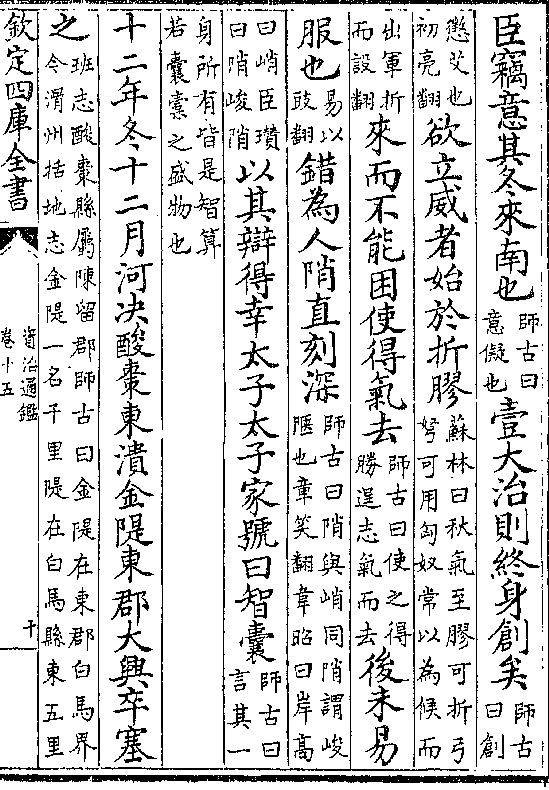 臣竊意其冬來南也師古曰意儗也壹大治則終身創矣師古曰創
懲艾也初亮翻欲立威者始於折膠蘇林曰秋氣至膠可折弓弩可用匈奴常以為候而
出軍折而設翻來而不能困使得氣去師古曰使之得勝逞志氣而去後未易
服也易以豉翻錯為人陗直刻深師古曰陗與峭同陗謂峻陿也韋笑翻韋昭曰岸高
曰峭臣瓚曰陗峻陗以其辯得幸太子太子家號曰智囊師古曰言其一
身所有皆是智算若囊橐之盛物也
十二年冬十二月河决酸棗東潰金隄東郡大興卒塞
之班志酸棗縣屬陳留郡師古曰金隄在東郡白馬界今渭州括地志金隄一名千里隄在白馬縣東五里
欽定四庫全書
資治通鑑
卷十五
十